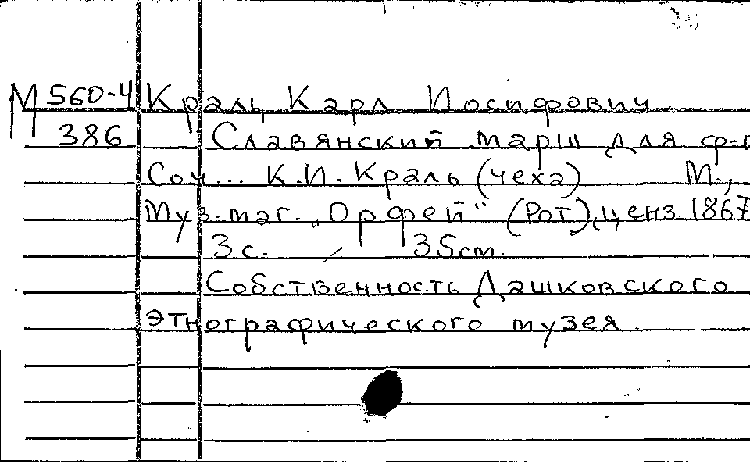 М 560-4 Краль, Карл Иосифович
386 Славянский марш для ф-п
Соч... К.И. Краль (чеха) М.,
Муз. маг. „Орфей“ (Рот), ценз. 1867
3 с. 35 cm.
Собственность Дашковского
этнографического музея.